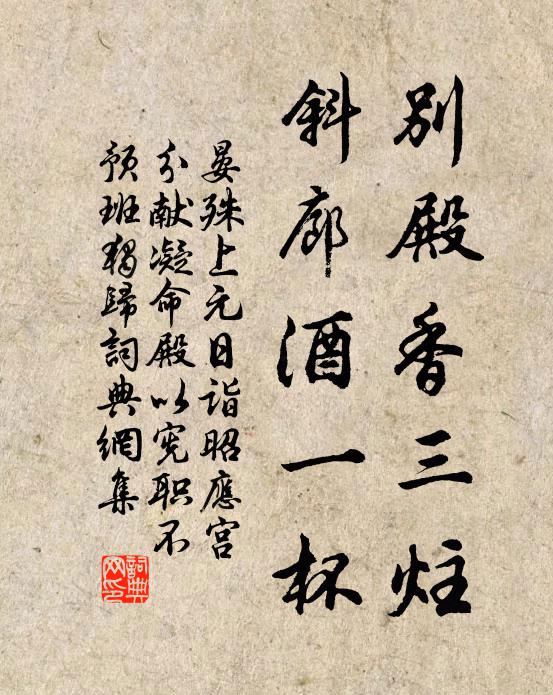 別殿香三炷
斜廊酒一杯
晏殊上元日詣昭應宮
分献凝命殿以宪职不
预班獨歸詞典網集
詞典网印